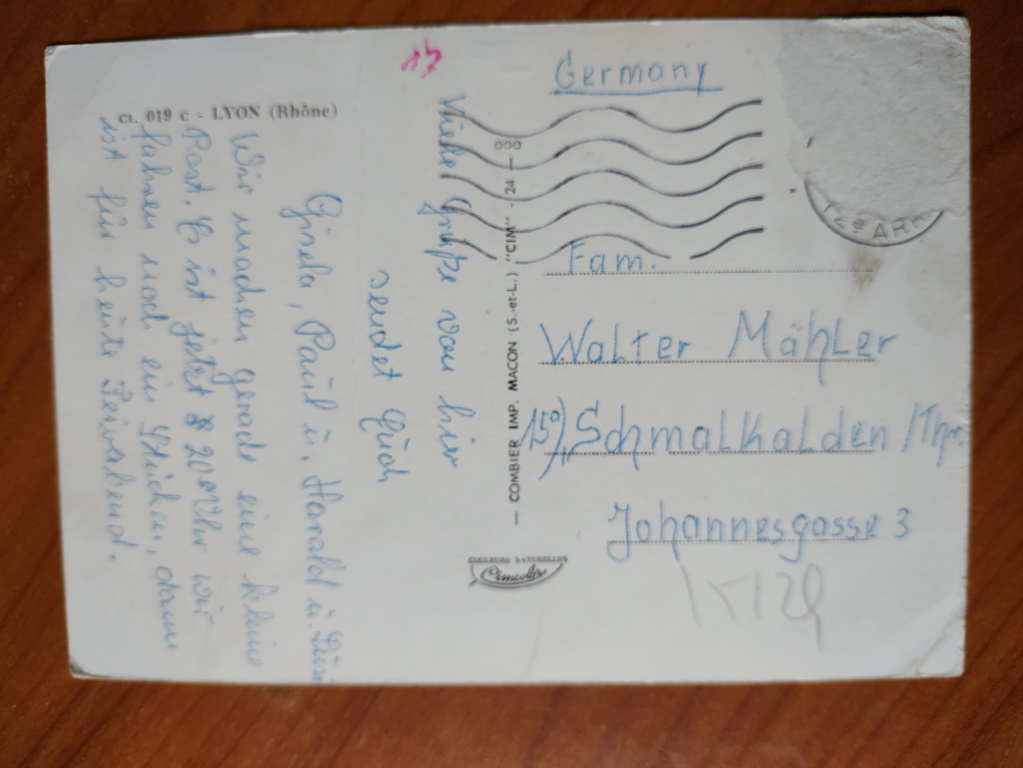 Ci. 019 c - LYON (Rhône)
17
Viele Grüße von hier
sendet Euch
Gisela, Paul u. Harald u.
Wir machen gerade eine kleine
Rast. Es ist jetzt 20 Uhr wir
fahren noch ein Stückn, dann
ist für heute Feierabend.
— COMBIER IMP. MACON (S.-et-L.) "CIM" - 24 —
000
COULEURS NATURELLES
Cimcolor
Germany
ARR.
Fam.
Walter Mähler
15a) Schmalkalden /Thür.
Johannesgasse 3